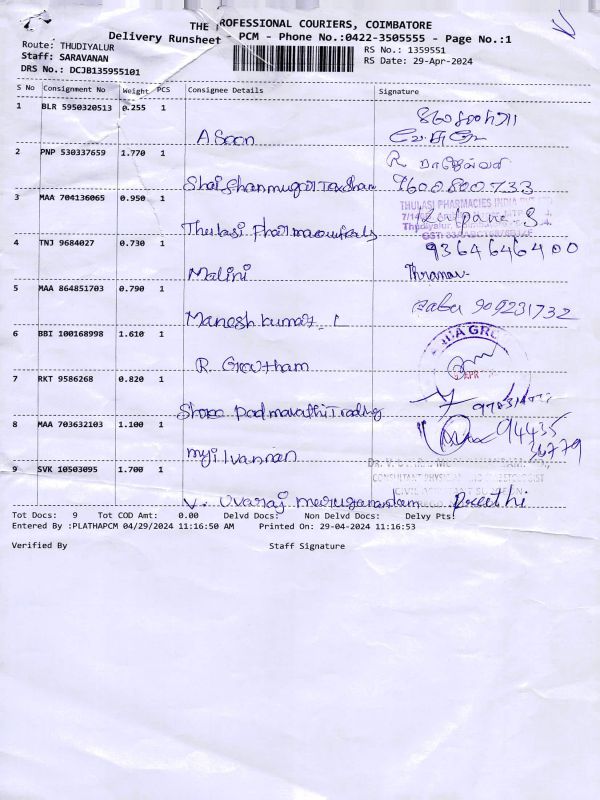 THE PROFESSIONAL COURIERS, COIMBATORE
Delivery Runsheet - PCM - Phone No.:0422-3505555 - Page No.:1
Route: THUDIYALUR
RS No.: 1359551
Staff: SARAVANAN
RS Date: 29-Apr-2024
DRS No.: DCJB135955101
S No Consignment No Weight PCS Consignee Details Signature
1 BLR 5950320513 0.255 1
A Soon
2 PNP 530337659 1.770 1
9600800733
3 MAA 704136065 0.950 1
THULASI PHARMACIES INDIA
Thulasi
4 TNJ 9684027 0.730 1
9364646400
Malini
Thranav
5 MAA 864851703 0.790 1
Manesh kumar L
909231732
6 BBI 100168998 1.610 1
R. Growtham
7 RKT 9586268 0.820 1
Shore padmavathi Trading
8 MAA 703632103 1.100 1
94435
36779
myilvannan
9 SVK 10503095 1.700 1
CONSULTANT PHYSICIAN
V. Uvaraj Meruganandam Preethi
Tot Docs: 9 Tot COD Amt: 0.00 Delvd Docs: Non Delvd Docs: Delvy Pts:
Entered By :PLATHAPCM 04/29/2024 11:16:50 AM Printed On: 29-04-2024 11:16:53
Verified By Staff Signature